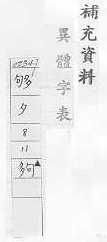 補充資料
異體字表
02347
够
夕
8
11
夠▲